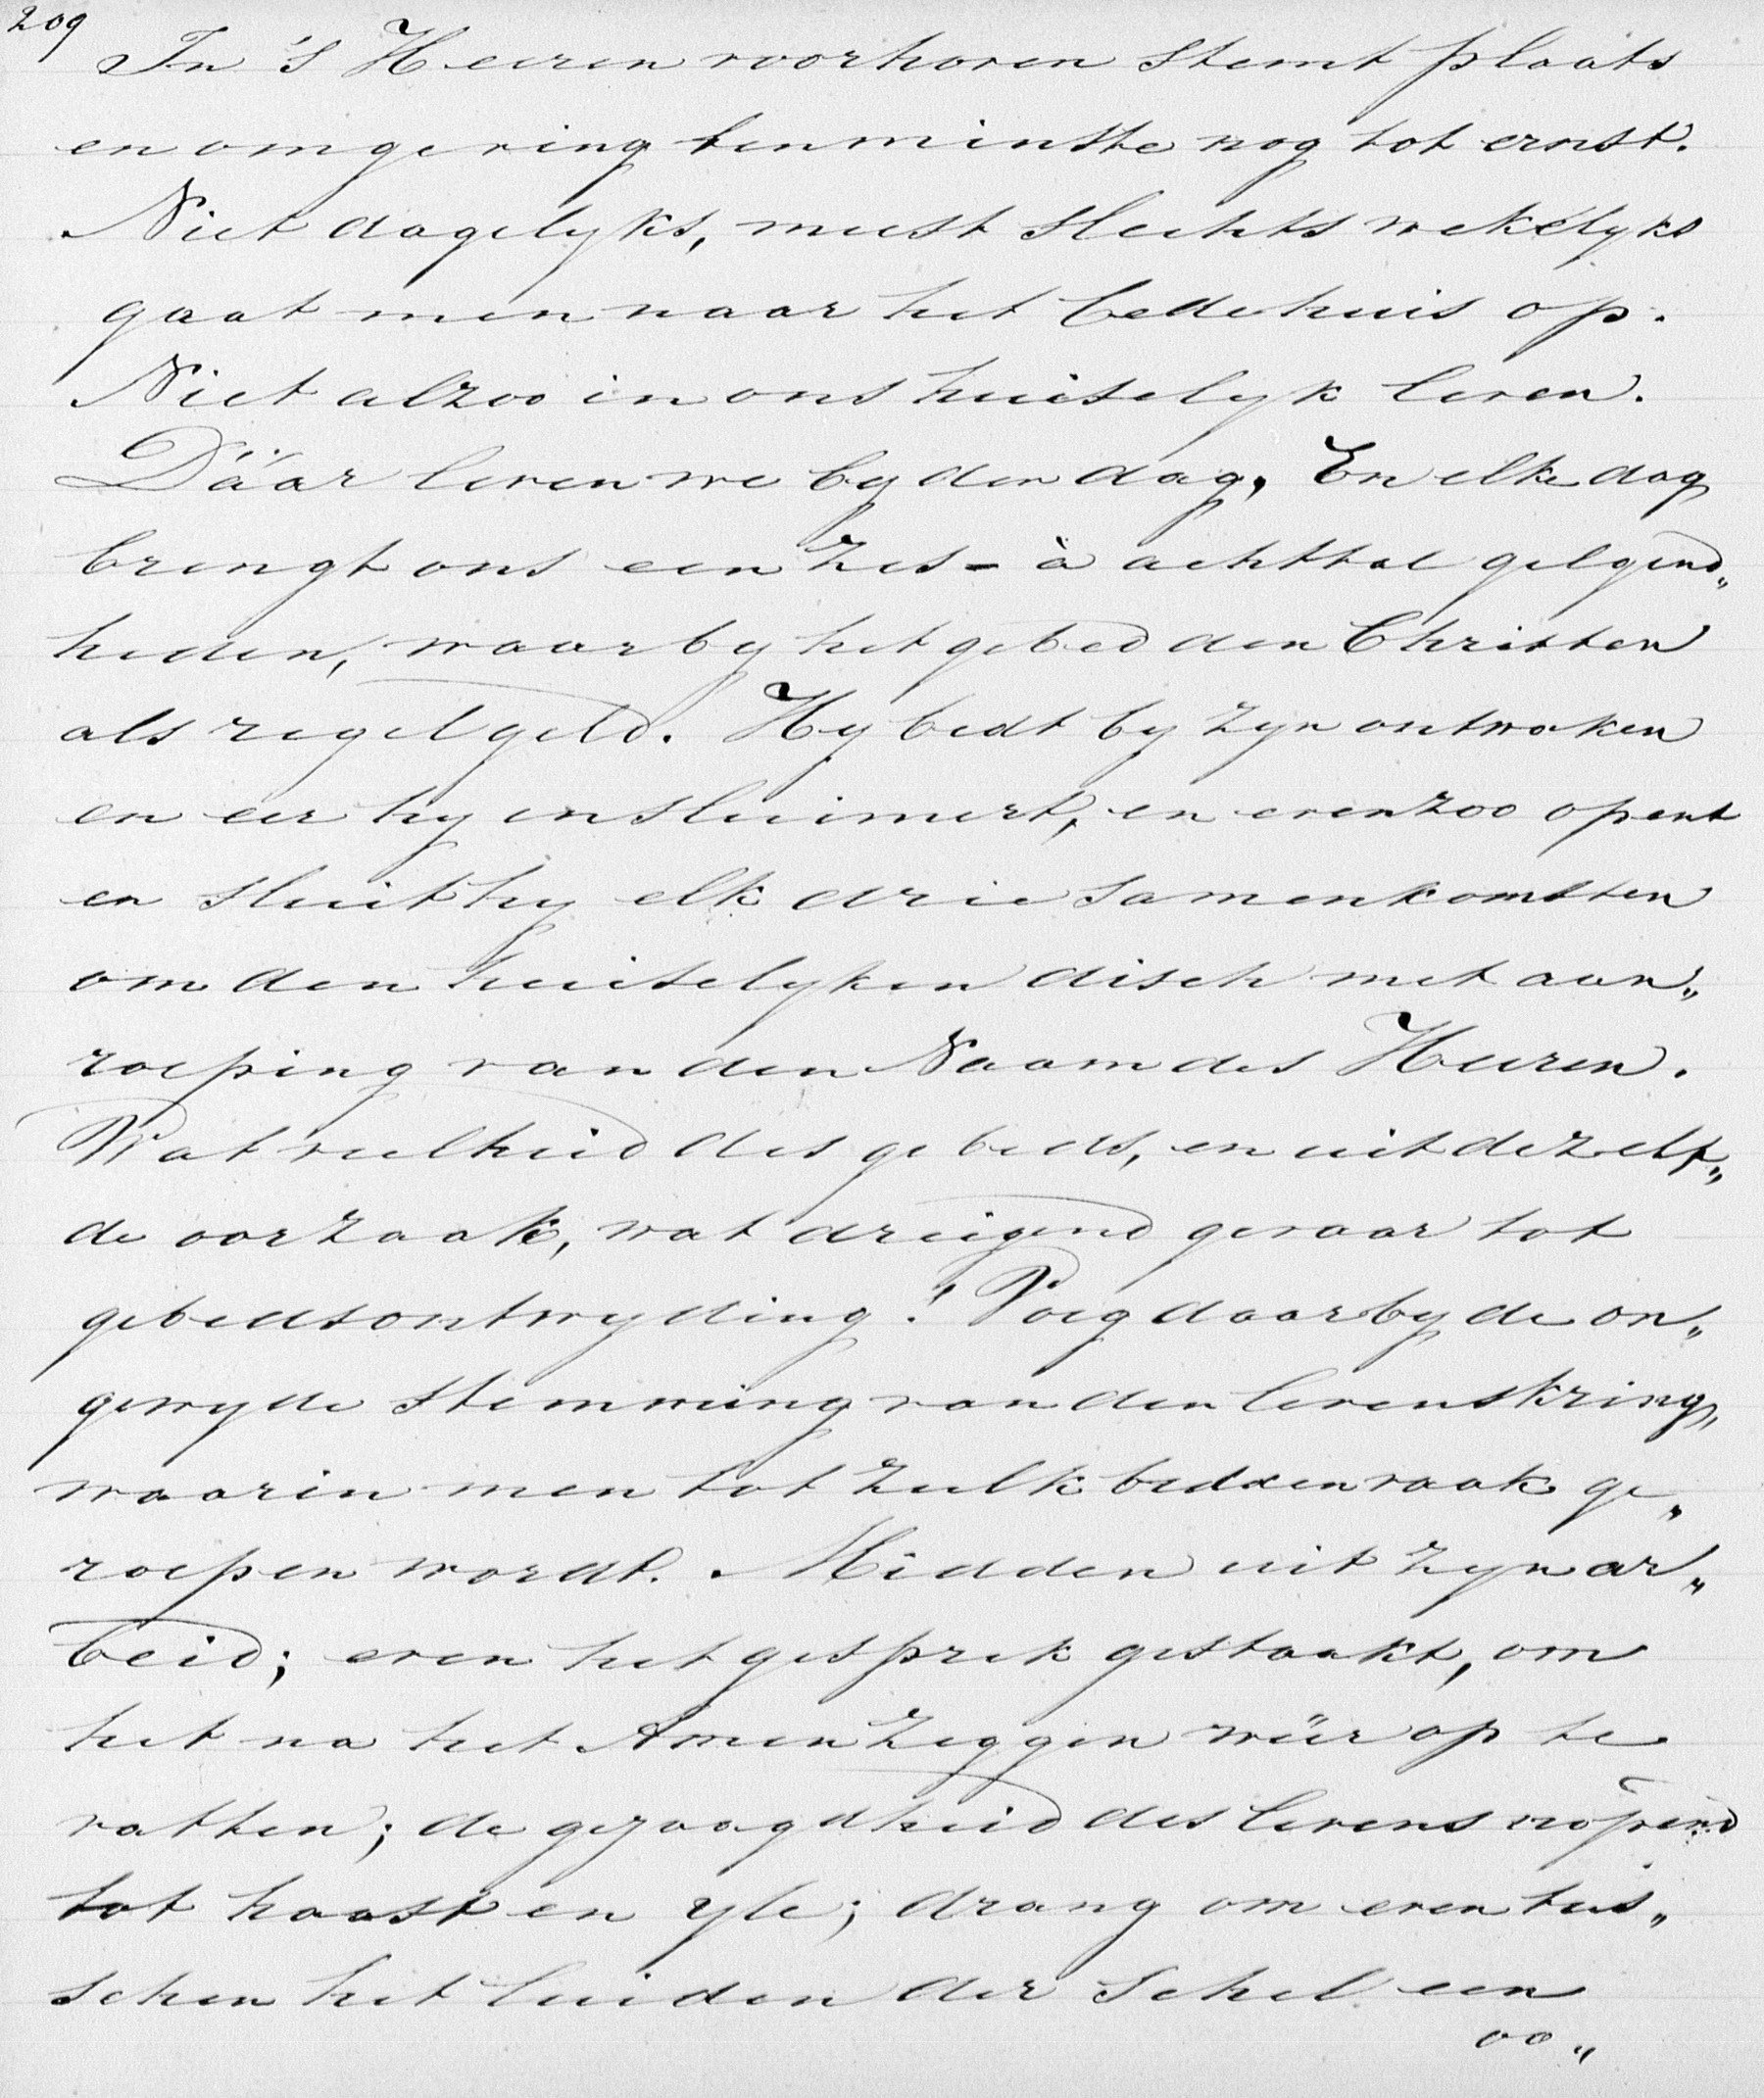 209
In 's Heeren voorhoven stemt plaats
en omgeving tenminste nog tot ernst.
Niet dagelyks, meest slechts wekelyks
gaat men naar het bedehuis op.
Niet alzoo in ons huiselyk leven.
Dáár leven we by den dag. En elke dag
brengt ons een zes- à achttal gelgend„
heden, waarby het gebed den Christen
als regel geld. Hy bedt by zyn ontwaken
en eer hy insluimert, en evenzoo opent
en sluit hy elk drie samenkomsten
om den huiselyken disch met aan„
roeping van den Naam des Heeren.
Wat veelheid des gebeds, en uit dezelf„
de oorzaak, wat dreigend gevaar tot
gebedsontwyding! Voeg daarby de on„
gewyde stemming van den levenskring,
waarin men tot zulk bedden vaak ge„
roepen wordt. Midden uit zyn ar„
beid; even het gesprek gestaakt, om
het na het Amen zeggen weer op te
vatten; de gejaagdheid des levens nopend
tot haast en yle; drang om even tus„
schen het luiden der schel een
oo„